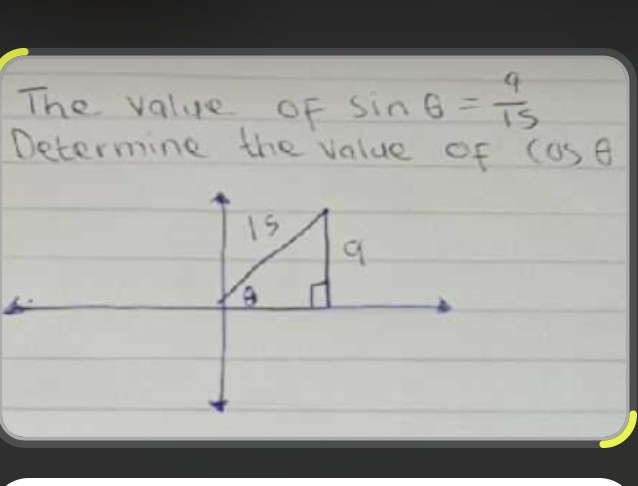 The value of sin θ = 9/15
Determine the value of cos θ
15
9
θ